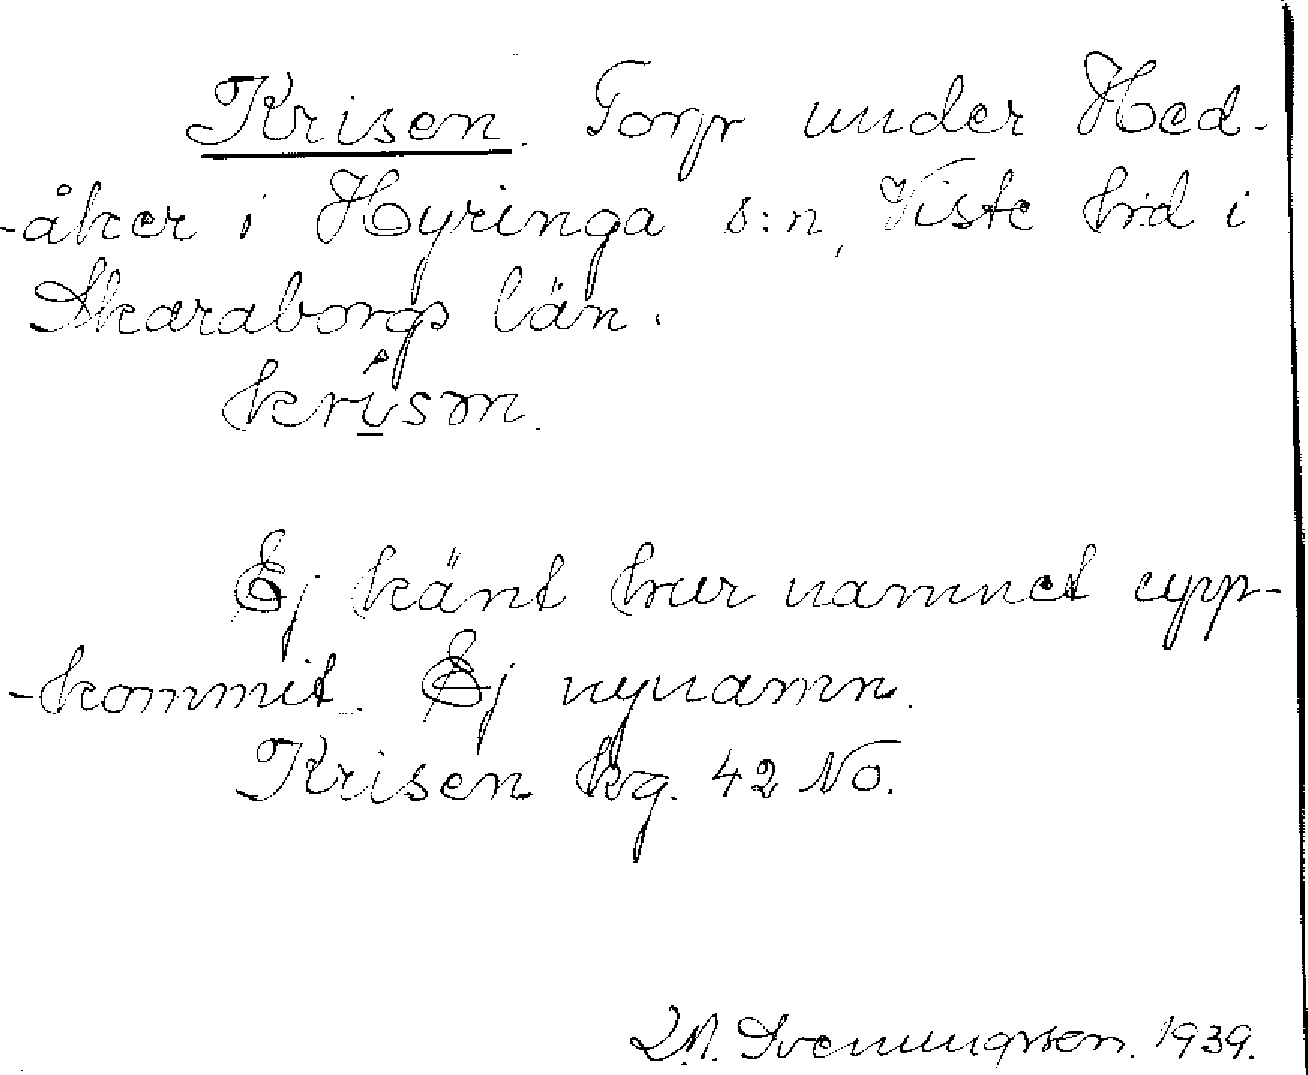 Krisen. Torp under Hed-
-åker i Hyringa s:n, Viste hd i
Skaraborgs län.
Ej känt hur namnet upp-
-kommit. Ej nynamn.
Krisen kg. 42 No.
Svenungsson. 1939.